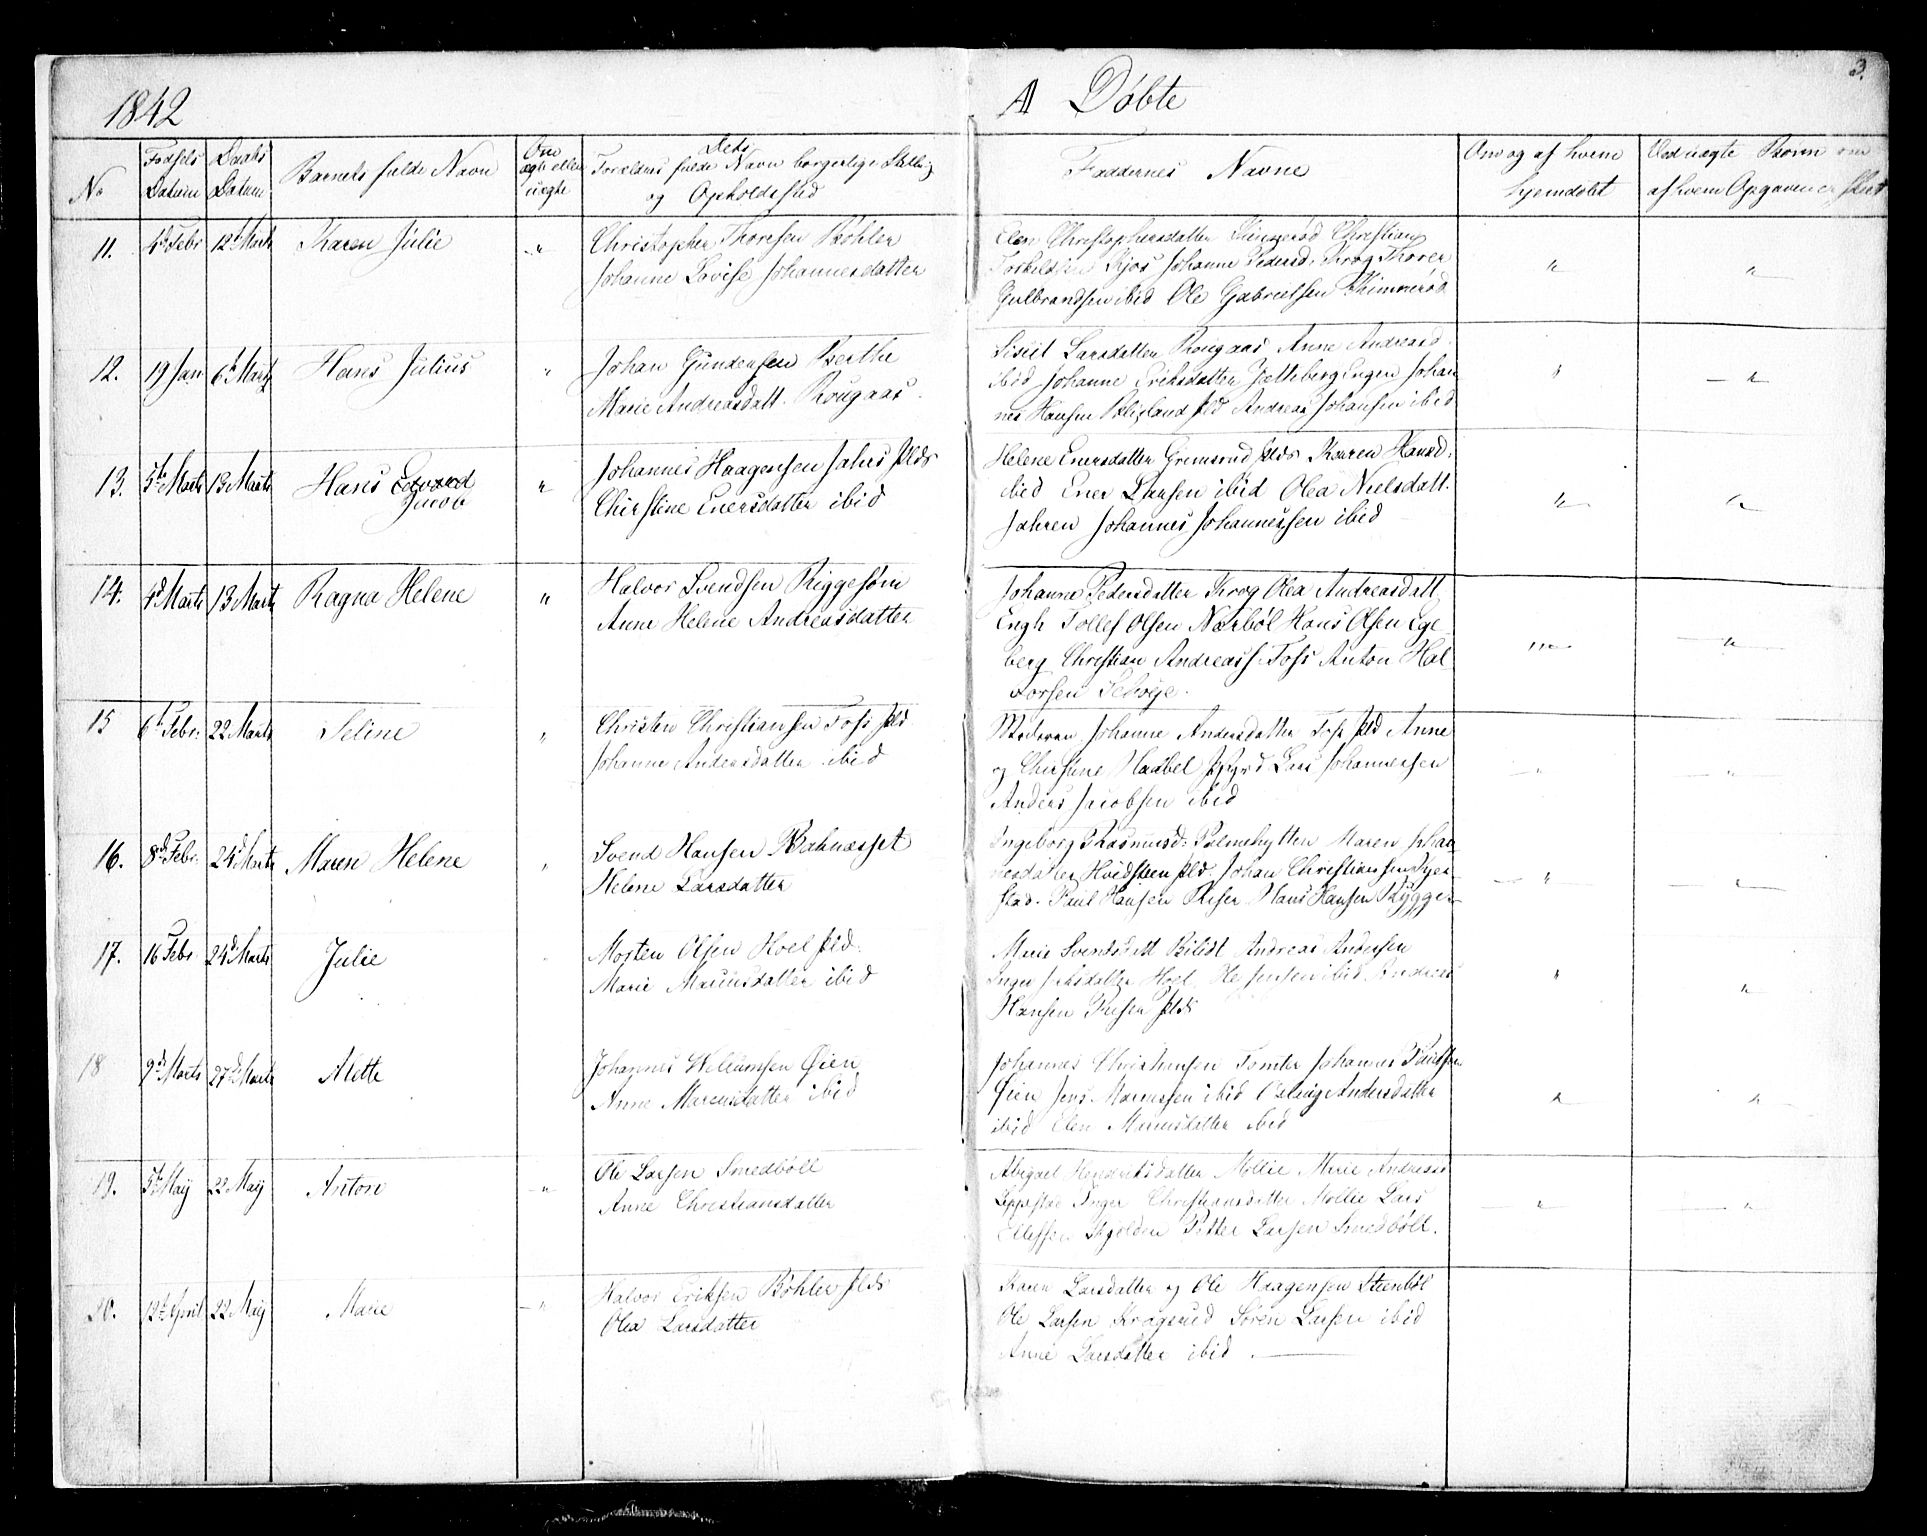 1842
A Döbte
3.
No
Fødsels Datum
Daabs Datum
Barnets fulde Navn
Om ægte eller uægte
Dets Foreldres fulde Navn borgerlige Stilling
og Opholdssted
Faddernes Navne
Om og af hvem hjemdøbt
Ved uægte Børn om
af hvem Opgaven er skeet
11. 4d Febr 12d Marts Karen Julie "
Christopher Thoresen Böhler
Johanne Lovise Johannesdatter
Elen Christophersdatter Christian
Torkildsen Johanne Pedersd. Krog Thorer
Gulbrandsen ibid Ole Gabrielsen
12. 19 Jan 6d Marts Hans Julius "
Johan Gundersen Berthe
Marie Andreasdatt. Rougaas.
Larsdatter Rougaas Anne Andreasd.
ibid Johanne Eriksdatter Engen Johan
nes Hansen Pld Andreas Johansen ibid
13. 5te Marts 13 Marts Hans Edvard
Jacob
Johannes Haagensen Jahrs Plds
Christine Enersdatter ibid
Helene Enersdatter Grimsrud Plds Karen Hansd:
ibid Ener Larsen ibid Olea Nielsdatt.
Jahren Johannes Johannessen ibid
14. 4d Marts 13 Marts Ragna Helene "
Halvor Svendsen
Anne Helene Andreasdatter
Johanne Pedersdatter Krog Olea Andreasdatt
Engh Tollef Olsen Nærböl Hans Olsen Ege
berg Christian Andreass. Foss Anton Hal
vorsen
15 6te Febr: 22 Marts Seline "
Christen Christiansen Foss Pld
Johanne Andersdatter ibid
Moderen Johanne Andersdatter Foss Pld Anne
og Christine Lars Johannessen
Anders Jacobsen ibid
16. 8de Febr: 24d Marts Maren Helene "
Svend Hansen
Helene Larsdatter
Ingeborg Rasmusd: Palmehytten Maren Johan
nesdatter Hvidsteen Pld. Johan Christiansen
stad. Paul Hansen Hans Hansen
17. 16 Febr. 24d Marts Julie
Morten Olsen Hoel Pld.
Marie Marcusdatter ibid
Marie Svendsdatt Andreas Andersen
Hoel Ole Jensen ibid. Andreas
Hansen Plds
18 9d Marts 27d Marts Alette
Johannes Willumsen Öien
Anne Marcusdatter ibid
Johannes Christensen Tomter Johannes Paulsen
Öien Jens ibid Andersdatter
ibid Elen Marcusdatter ibid
19. 5te Maÿ 22 Maÿ Anton "
Ole Larsen Smedböll
Anne Christiansdatter
Abigael Hendriksdatter Mollie Marie Andreas
Inger Christiansdatter Mollie Lars
Ellefsen Petter Larsen Smedböll.
20. 12te April 22 Maÿ Marie "
Halvor Eriksen Böhler Plds
Olea Larsdatter
Karen Larsdatter og Ole Haagensen Steenböl
Ole Larsen Kragsrud Sören Larsen ibid
Anne Larsdatter ibid.